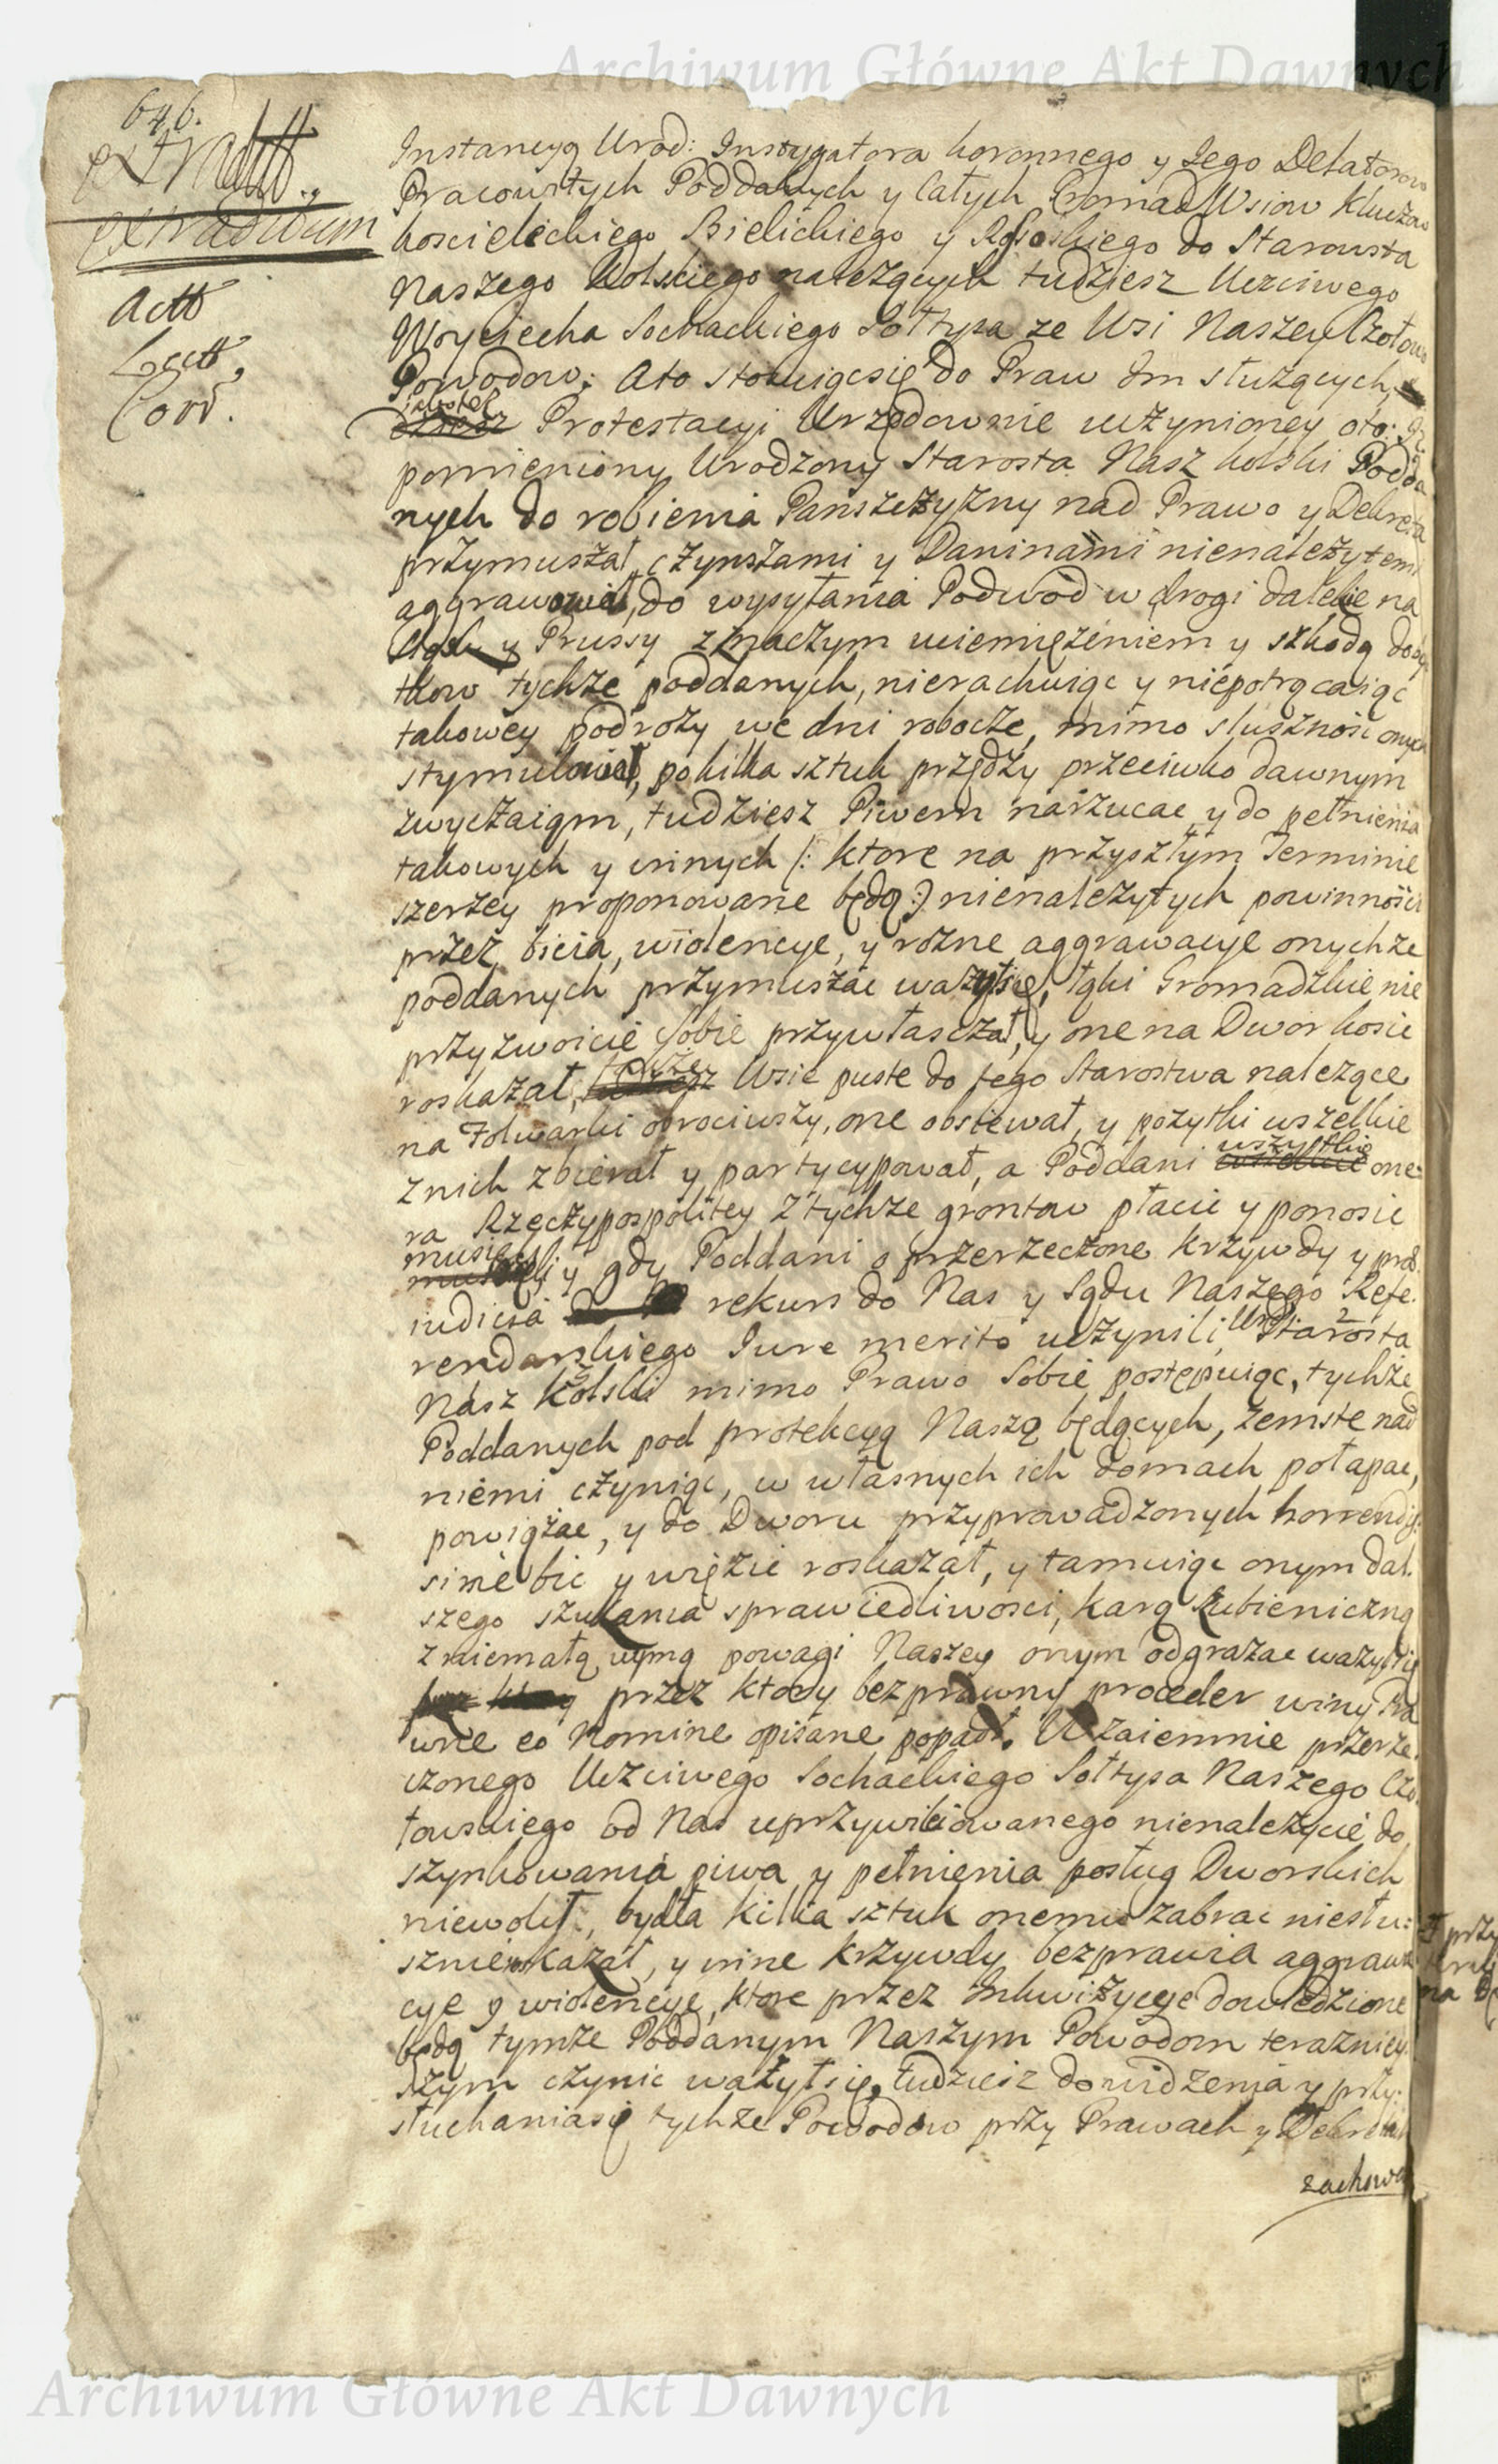 Archiwum Główne Akt Dawnych
646.
Extradit.
extradıtum
Actt
Lectt,
Corr.
Instancyą Urod: Instygatora koronnego y Jego Delatorow
Pracowitych Poddanych y całych Gromad Wsiow Kluczow
koscieleckiego Bielickiego y do Starowsta
Naszego Kolskiego nalezących tudziesz Uczciwego
Woyciecha Sochackiego Sołtysa ze Wsi Naszey Czołowo
Powodow; Ato stosuiącsię do Praw Im służących,
iakotéż
Protestacyi Urzędownie uczynioney oto: Iż
pomieniony Urodzony Starosta Nasz kolski Podda
nych do robienia Pańszczyzny nad Prawo y Dekreta
przymuszał, czynszami y Daninami nienależytemi
aggrawował, do wysyłania Podwod w drogi dalekie na
y Prussy znacznym uciemiężeniem y szkodą doby
tkow tychże poddanych, nierachuiąc y niepotrącaiąc
takowey podroży we dni robocze, mimo słusznośc onych
stymulował, pokilka sztuk przędży przeciwko dawnym
zwyczaiom, tudziesz Piwem narzucac y do pełnienia
takowych y innych /: ktore na przyszłym Terminie
szerzey proponowane będą :/ nienależytych powinności
przez bicia, wiolencye, y rożne aggrawacye onychże
poddanych przymuszac ważyłsię, łąki Gromadzkie nie
przyzwoicie sobie przywłaszczał, y one na Dwor kosic
roskazał, także Wsie puste do tego Starostwa należące
na Folwarki obrociwszy, one obsiewał, y pożytki wszelkie
z nich zbierał y partycypował, a Poddani wszystkie one=
ra Rzeczypospolitey z tychże grontow płacić y ponosic
musieli y gdy Poddani o przerzeczone krzywdy y prae
iudicia rekurs do Nas y Sądu Naszego Refe.
rendarskiego Jure merito uczynili, Urod Starosta
Nasz Kolski mimo Prawo sobie postępuiąc, tychże
Poddanych pod protekcyą Naszą będących, zemste nad
niemi czyniąc, w własnych ich domach połapac,
powiązac, y do Dworu przyprowadzonych horrendis
sime bic y więzic roskazał, y tamuiąc onym dal.
szego szukania sprawiedliwości, karą szubieniczną
z niemałą uymą powagi Naszey onym odgrażac ważyłsię
przez ktory bezprawny proceder winy Pra
wne eo Nomine opisane popadł. Wzaiemnie przerze
czonego Uczciwego Sochackiego Sołtysa Naszego Czo
łowskiego od Nas uprzywileiowanego nienależycie do
szynkowania piwa y pełnienia posług Dworskich
niewolił, bydła kilka sztuk onemu zabrac niesłu:
sznie kazał, y inne krzywdy bezprawia aggrawa
cye y wiolencye, ktore przez Inkwizycye dowiedzione
będą tymże Poddanym Naszym Powodom terazniey
szym czynic ważyłsię, tudziesz do widzenia y przy.
słuchaniasię tychże Powodow przy Prawach y Dekretach
zachowa
Archiwum Główne Akt Dawnych